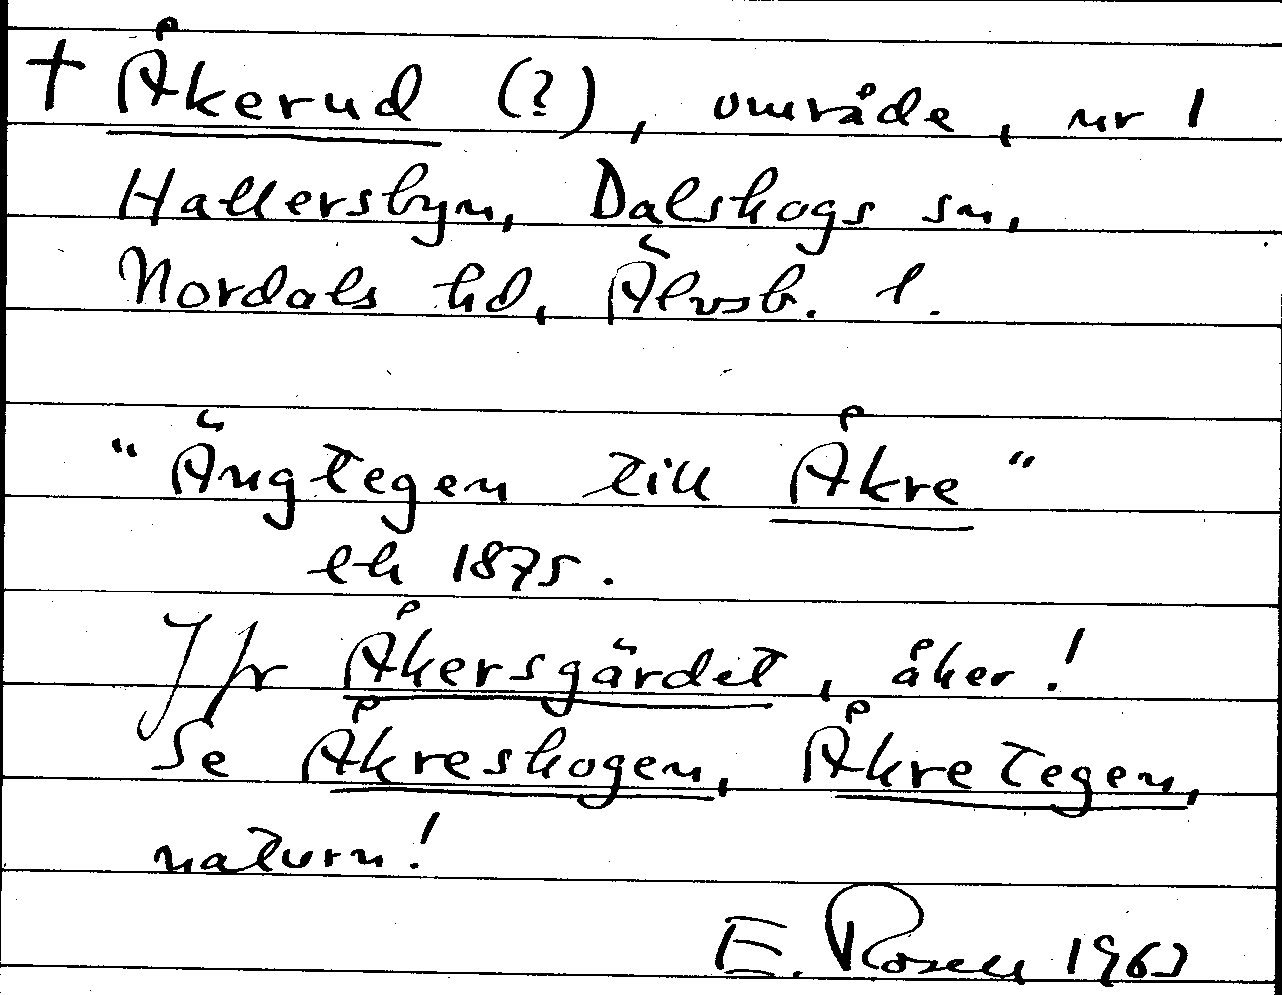 † Åkerud (?), område, nr 1
Hallersbyn, Dalskogs sn,
Nordals hd, Älvsb. l.
"Ängtegen till Åkre"
ek 1875.
Jfr Åkersgärdet, åker!
Se Åkreskogen, Åkretegen,
naturn!
E. Rosell 1963